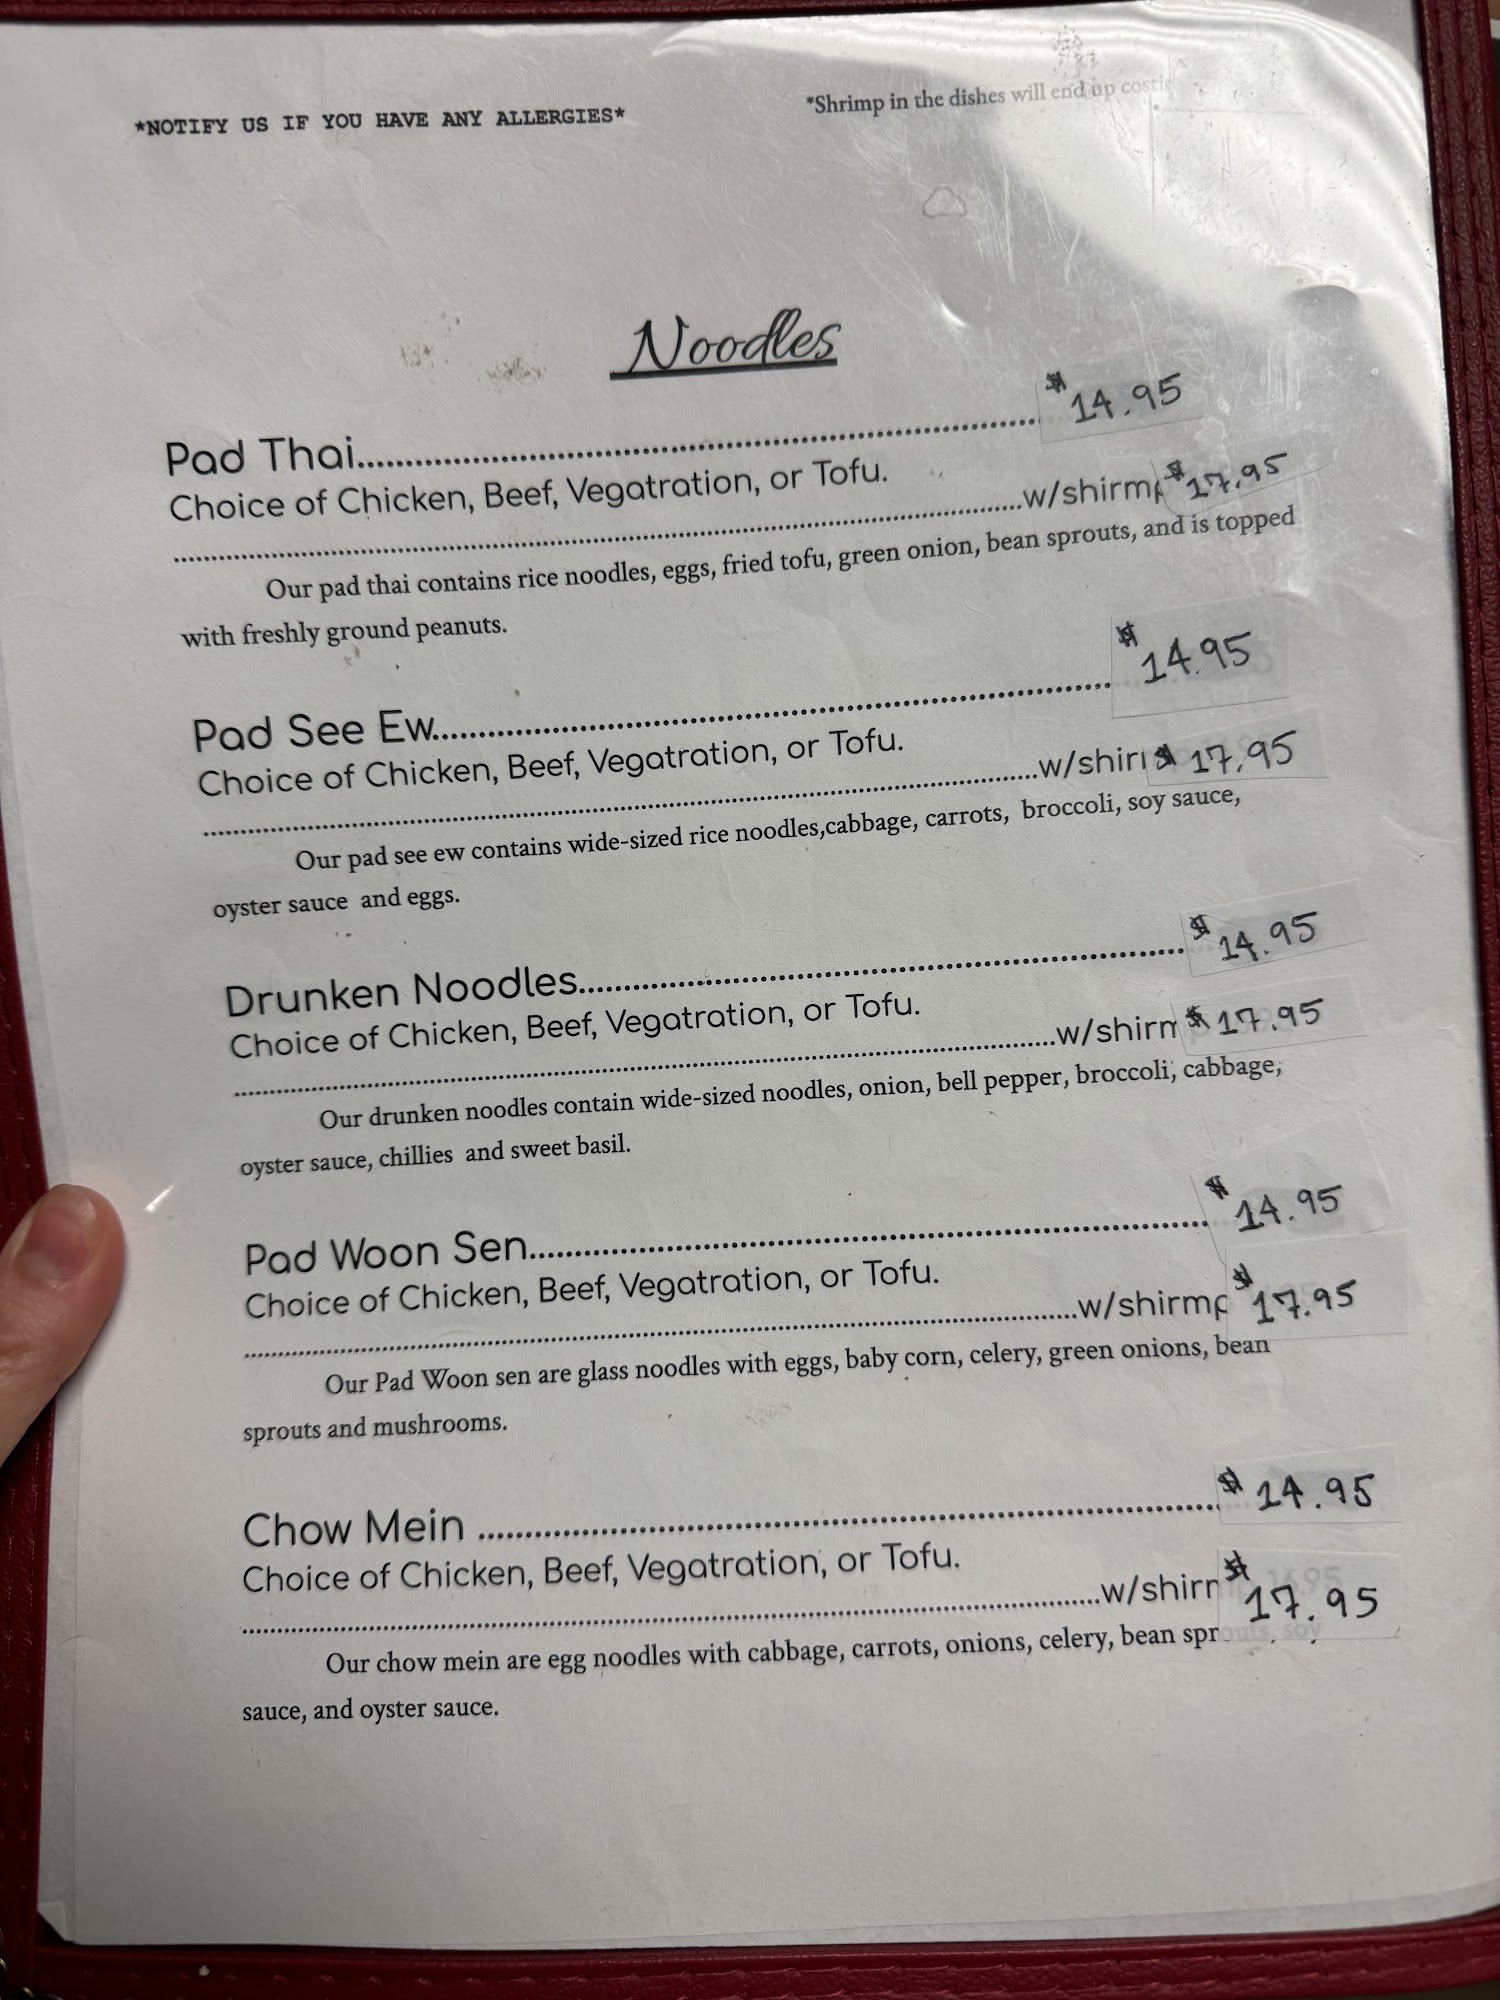 *NOTIFY US IF YOU HAVE ANY ALLERGIES*
*Shrimp in the dishes will end up costi
Noodles
Pad Thai........................................ $14.95
Choice of Chicken, Beef, Vegatration, or Tofu.
........................................w/shirmp $17.95
Our pad thai contains rice noodles, eggs, fried tofu, green onion, bean sprouts, and is topped
with freshly ground peanuts.
Pad See Ew........................................ $14.95
Choice of Chicken, Beef, Vegatration, or Tofu.
........................................w/shirm $17.95
Our pad see ew contains wide-sized rice noodles,cabbage, carrots, broccoli, soy sauce,
oyster sauce and eggs.
Drunken Noodles........................................ $14.95
Choice of Chicken, Beef, Vegatration, or Tofu.
........................................w/shirm $17.95
Our drunken noodles contain wide-sized noodles, onion, bell pepper, broccoli, cabbage,
oyster sauce, chillies and sweet basil.
Pad Woon Sen........................................ $14.95
Choice of Chicken, Beef, Vegatration, or Tofu.
........................................w/shirmp $17.95
Our Pad Woon sen are glass noodles with eggs, baby corn, celery, green onions, bean
sprouts and mushrooms.
Chow Mein ........................................ $14.95
Choice of Chicken, Beef, Vegatration, or Tofu.
........................................w/shirm $17.95
Our chow mein are egg noodles with cabbage, carrots, onions, celery, bean sprouts, soy
sauce, and oyster sauce.